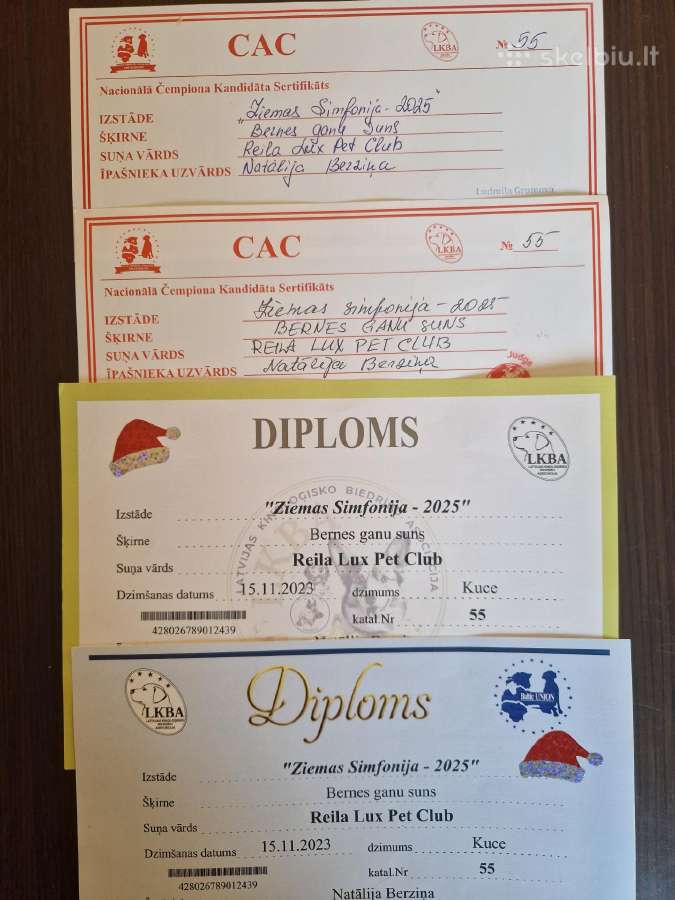 CAC
LKBA
№ 55
skelbiu.lt
Nacionālā Čempiona Kandidāta Sertifikāts
IZSTĀDE „Ziemas Simfonija - 2025"
ŠĶIRNE Bernes ganu suns
SUŅA VĀRDS Reila Lux Pet Club
ĪPAŠNIEKA UZVĀRDS Natālija Berziņa
Ludmila Gromova
CAC
LKBA
№ 55
Nacionālā Čempiona Kandidāta Sertifikāts
IZSTĀDE Ziemas simfonija - 2025
ŠĶIRNE BERNES GANU SUNS
SUŅA VĀRDS REILA LUX PET CLUB
ĪPAŠNIEKA UZVĀRDS Natālija Berziņa
Judge
DIPLOMS
LKBA
Izstāde "Ziemas Simfonija - 2025"
Šķirne Bernes ganu suns
Suņa vārds Reila Lux Pet Club
Dzimšanas datums 15.11.2023 dzimums Kuce
katal.Nr 55
428026789012439
LKBA
Diploms
Baltic UNION
Izstāde "Ziemas Simfonija - 2025"
Šķirne Bernes ganu suns
Suņa vārds Reila Lux Pet Club
Dzimšanas datums 15.11.2023 dzimums Kuce
katal.Nr 55
428026789012439
Natālija Berziņa